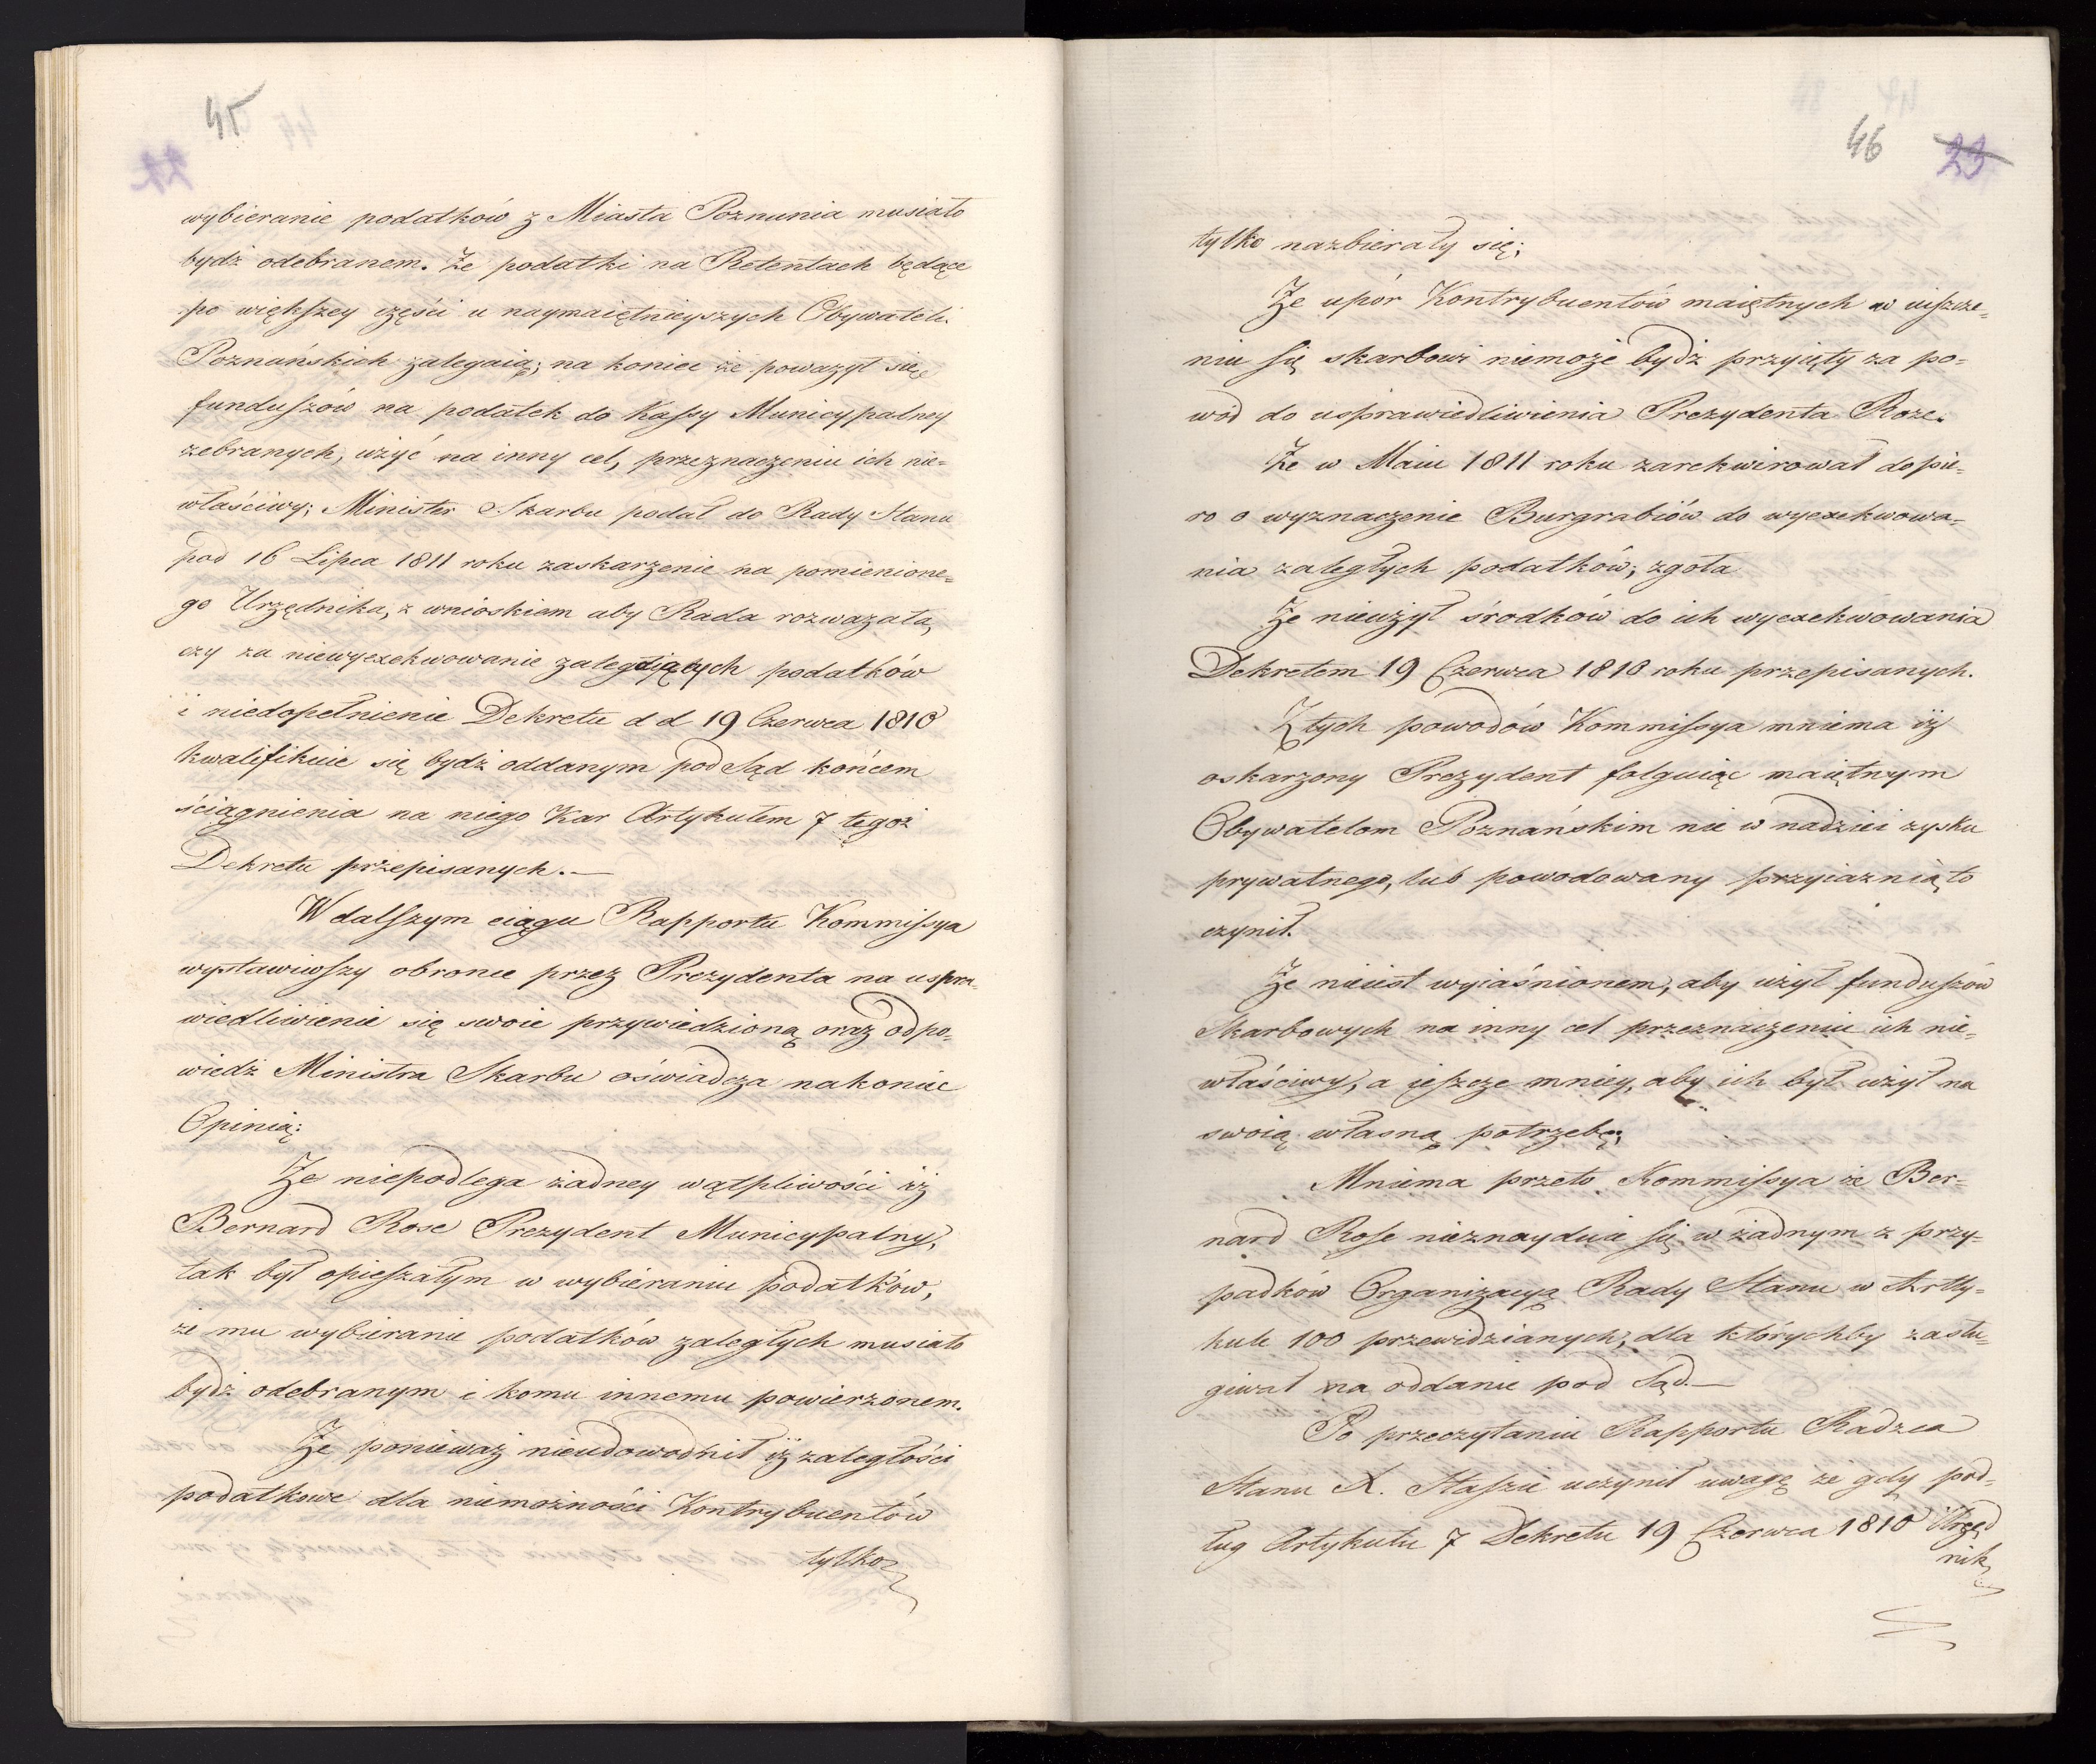 45
wybieranie podatków z Miasta Poznania musiało
bydź odebranem. Że podatki na Retentach będące
po więkſzey części u naymaiętnieyszych Obywateli
Poznańskich zalegaią; na koniec że poważył się
funduſzów na podatek do Kaſsy Municypalney
zebranych, użyć na inny cel, przeznaczeniu ich nie=
właściwy; Minister Skarbu podał do Rady Stanu
pod 16 Lipca 1811 roku zaskarzenie na pomienione=
go Urzędnika, z wnioskiem aby Rada rozważała,
czy za niewyexekwowanie zalegających podatków
i niedopełnienie Dekretu d d 19 Czerwca 1810
kwalifikuie się bydź oddanym pod Sąd końcem
ściągnienia na niego Kar Artykułem 7 tegoż
Dekretu przepisanych.—
W dalſzym ciągu Rapportu Kommiſsya
wystawiwſzy obronę przez Prezydenta na uspra=
wiedliwienie się swoie przywiedzioną oraz odpo=
wiedź Ministra Skarbu oświadcza nakoniec
Opinią:
Że niepodlega żadney wątpliwości iż
Bernard Rose Prezydent Municypalny,
tak był opieſzałym w wybieraniu podatków,
że mu wybieranie podatków zaległych musiało
bydź odebranym i komu innemu powierzonem.
Że ponieważ nieudowodnił iż zaległości
podatkowe dla niemożności Kontrybuentów
tylko
46 23
tylko nazbierały się;
Że upór Kontrybuentów maiętnych w uiſzcze=
niu ſię skarbowi niemoże bydź przyięty za po=
wód do usprawiedliwienia Prezydenta Roze.
Że w Maiu 1811 roku zarekwirował dopie=
ro o wyznaczenie Burgrabiów do wyexekwowa=
nia zaległych podatków; zgoła
Że nieużył środków do ich wyexekwowania
Dekretem 19 Czerwca 1810 roku przepisanych.
Z tych powodów Kommiſsya mniema iż
oskarzony Prezydent folguiąc maiętnym
Obywatelom Poznańskim nie w nadziei zysku
prywatnego, lub powodowany przyiaznią to
czynił.
Że nieiest wyiaśnionem, aby użył funduſzów
Skarbowych na inny cel przeznaczeniu ich nie=
właściwy, a ieſzcze mniey, aby ich był użył na
swoią własną potrzebę;
Mniema przeto Kommiſsya że Ber=
nard Roſe nieznayduie ſię w żadnym z przy=
padków Organizacyą Rady Stanu w Artty=
kule 100 przewidzianych, dla którychby zasłu=
giwał na oddanie pod Sąd.—
Po przeczytaniu Rapportu Radzca
Stanu X. Staſzic uczynił uwagę że gdy pod=
ług Artykułu 7 Dekretu 19 Czerwca 1810 Urzęd
nik